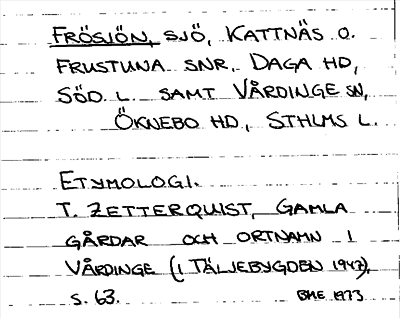 FRÖSJÖN, SJÖ, KATTNÄS O.
FRUSTUNA SNR, DAGA HD,
SÖD. L. SAMT VÅRDINGE SN,
ÖKNEBO HD, STHLMS L.
ETYMOLOGI.
T. ZETTERQUIST, GAMLA
GÅRDAR OCH ORTNAMN I
VÅRDINGE (I TÄLJEBYGDEN 1947),
S. 63. BME 1973